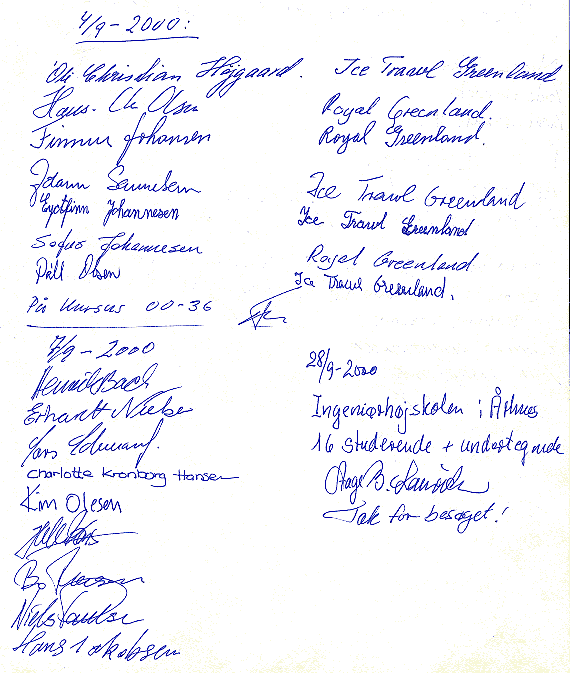 4/9-2000:
Óli Christian Højgaard. Ice Trawl Greenland
Hans-Chr Olsen Royal Greenland.
Finnur Johansen Royal Greenland.
Jóann Sannesen Ice Trawl Greenland
Eyðfinn Johannesen Ice Trawl Greenland
Sofus Johannesen Royal Greenland
Páll Olsen Ice Trawl Greenland.
På Kursus 00-36
7/9-2000
Henrik Bach
Erhardt Nielse
Lars
Charlotte Kronborg Hansen
Kim Olesen
Bo
Niels
Hans Jakobsen
28/9-2000
Ingeniørhøjskolen i Århus
16 studerende + undertegnede
Aage B.
Tak for besøget!